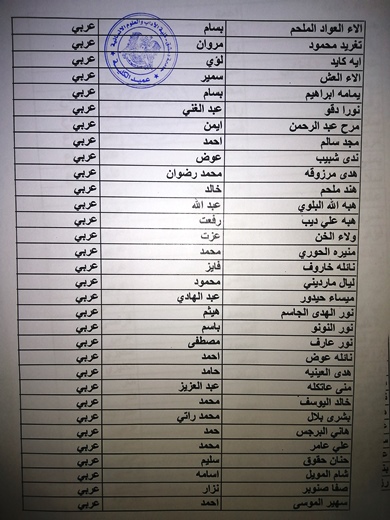 الاء العواد الملحم بسام عربي
تغريد محمود مروان عربي
ايه كايد لؤي عربي
الاء العش سمير عربي
يمامه ابراهيم بسام عربي
نورا دقو عبد الغني عربي
مرح عبد الرحمن ايمن عربي
مجد سالم احمد عربي
ندى شبيب عوض عربي
هدى مرزوقه محمد رضوان عربي
هند ملحم خالد عربي
هبه الله البلوي عبد الله عربي
هبه علي ديب رفعت عربي
ولاء الخن عزت عربي
منيره الحوري محمد عربي
نائله خاروف فايز عربي
ليال مارديني محمود عربي
ميساء حيدور عبد الهادي عربي
نور الهدى الجاسم هيثم عربي
نور النونو باسم عربي
نور عارف مصطفى عربي
نائله عوض احمد عربي
هدى العينيه حامد عربي
منى عاتكله عبد العزيز عربي
خالد اليوسف محمد عربي
بشرى بلال محمد راتي عربي
هاني البرجس حمد عربي
علي عامر محمد عربي
حنان حقوق سليم عربي
شام المويل اسامه عربي
صفا صنوبر نزار عربي
سهير الموسي احمد عربي